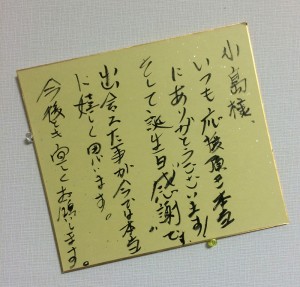 小島様、
いつも応援頂き本当
にありがとうございます!
そして誕生日"感謝"です
出会えた事が今では本当
に嬉しく思います。
今後とも宜しくお願いします。